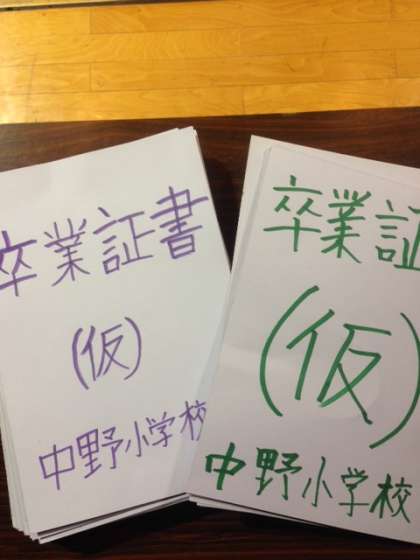 卒業証書
(仮)
中野小学校
卒業証
(仮)
中野小学校